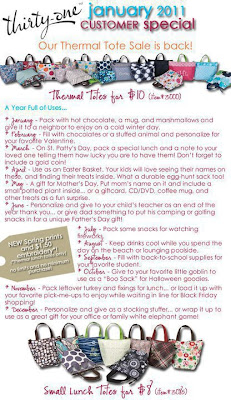 thirty-one
january 2011
CUSTOMER special
Our Thermal Tote Sale is back!
Thermal Totes for $10
A Year Full of Uses...
* January - Pack with hot chocolate, a mug, and marshmallows and
give it to a neighbor to enjoy on a cold winter day.
* February - Fill with chocolates or a stuffed animal and personalize for
your favorite Valentine.
* March - On St. Patty's Day, pack a special lunch and a note to your
loved one telling them how lucky you are to have them! Don't forget to
include a gold coin!
* April - Use as an Easter Basket. Your kids will love seeing their names on
these, and finding their treats inside. What a durable egg hunt sack too!
* May - A gift for Mother's Day. Put mom's name on it and include a
small potted plant inside... or a giftcard, CD/DVD, coffee mug, and
other treats as a fun surprise.
* June - Personalize and give to your child's teacher as an end of the
year thank you... or give dad something to put his camping or golfing
snacks in for a unique Father's Day gift!
* July - Pack some snacks for watching
fireworks.
* August - Keep drinks cool while you spend the
day on the beach or lounging poolside.
* September - Fill with back-to-school supplies for
your favorite student.
* October - Give to your favorite little goblin to
use as a "Boo Sack" for Halloween goodies.
NEW Spring prints
and $1.60
embroidery!
* November - Pack leftover turkey and fixings for lunch... or load it up with
your favorite pick-me-ups to enjoy while waiting in line for Black Friday
shopping!
* December - Personalize and give as a stocking stuffer... or wrap it up to
use as a great gift for your office or family white elephant game!
Small Lunch Totes for $8